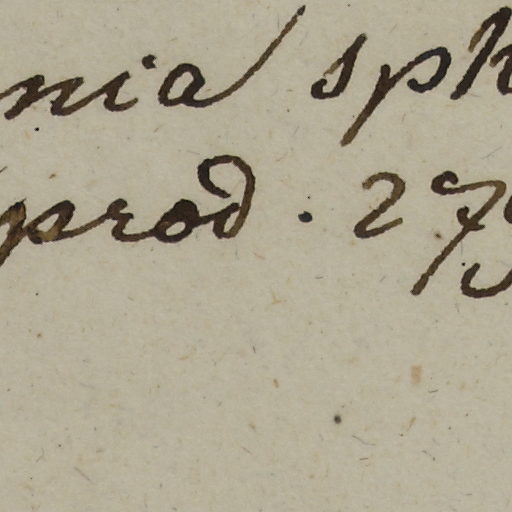 nia sph
prod. 279